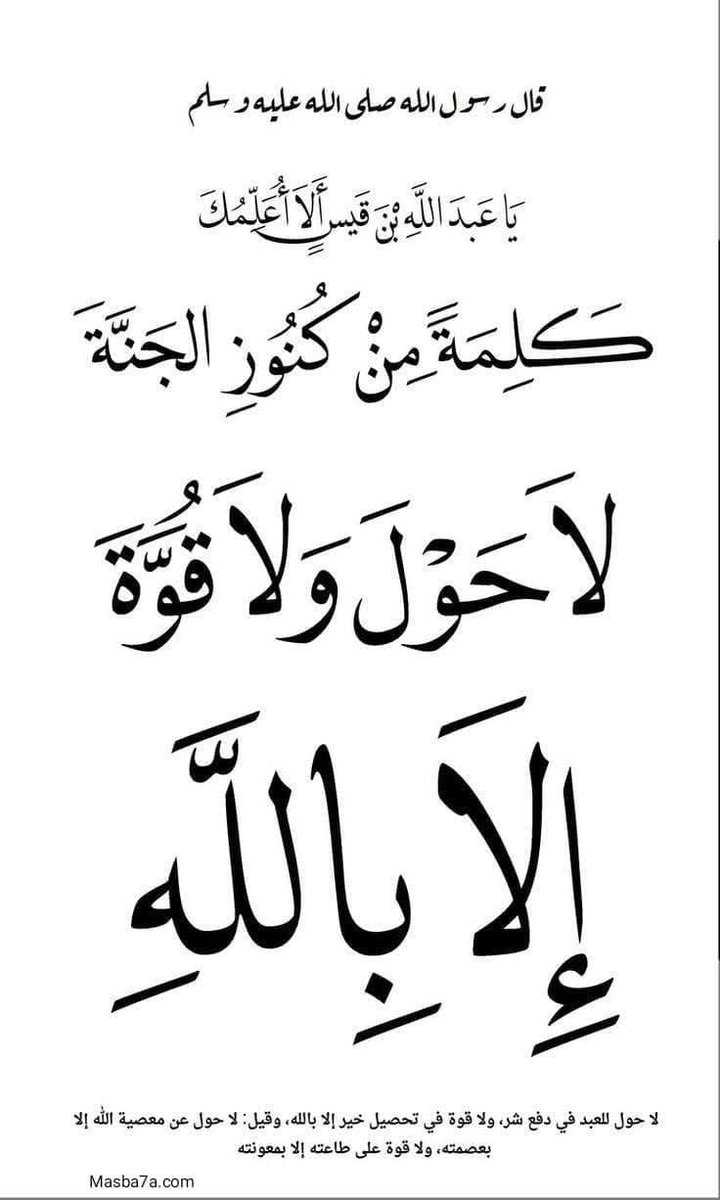 قال رسول الله صلى الله عليه وسلم
يَا عَبدَ اللَّهِ بْنَ قَيسٍ أَلَا أُعَلِّمُكَ
كَلِمَةً مِنْ كُنُوزِ الجَنَّةَ
لاَ حَوْلَ وَلاَ قُوَّةَ
إِلاَ بِاللَّهِ
لا حول للعبد في دفع شر، ولا قوة في تحصيل خير إلا بالله، وقيل: لا حول عن معصية الله إلا
بعصمته، ولا قوة على طاعته إلا بمعونته
Masba7a.com